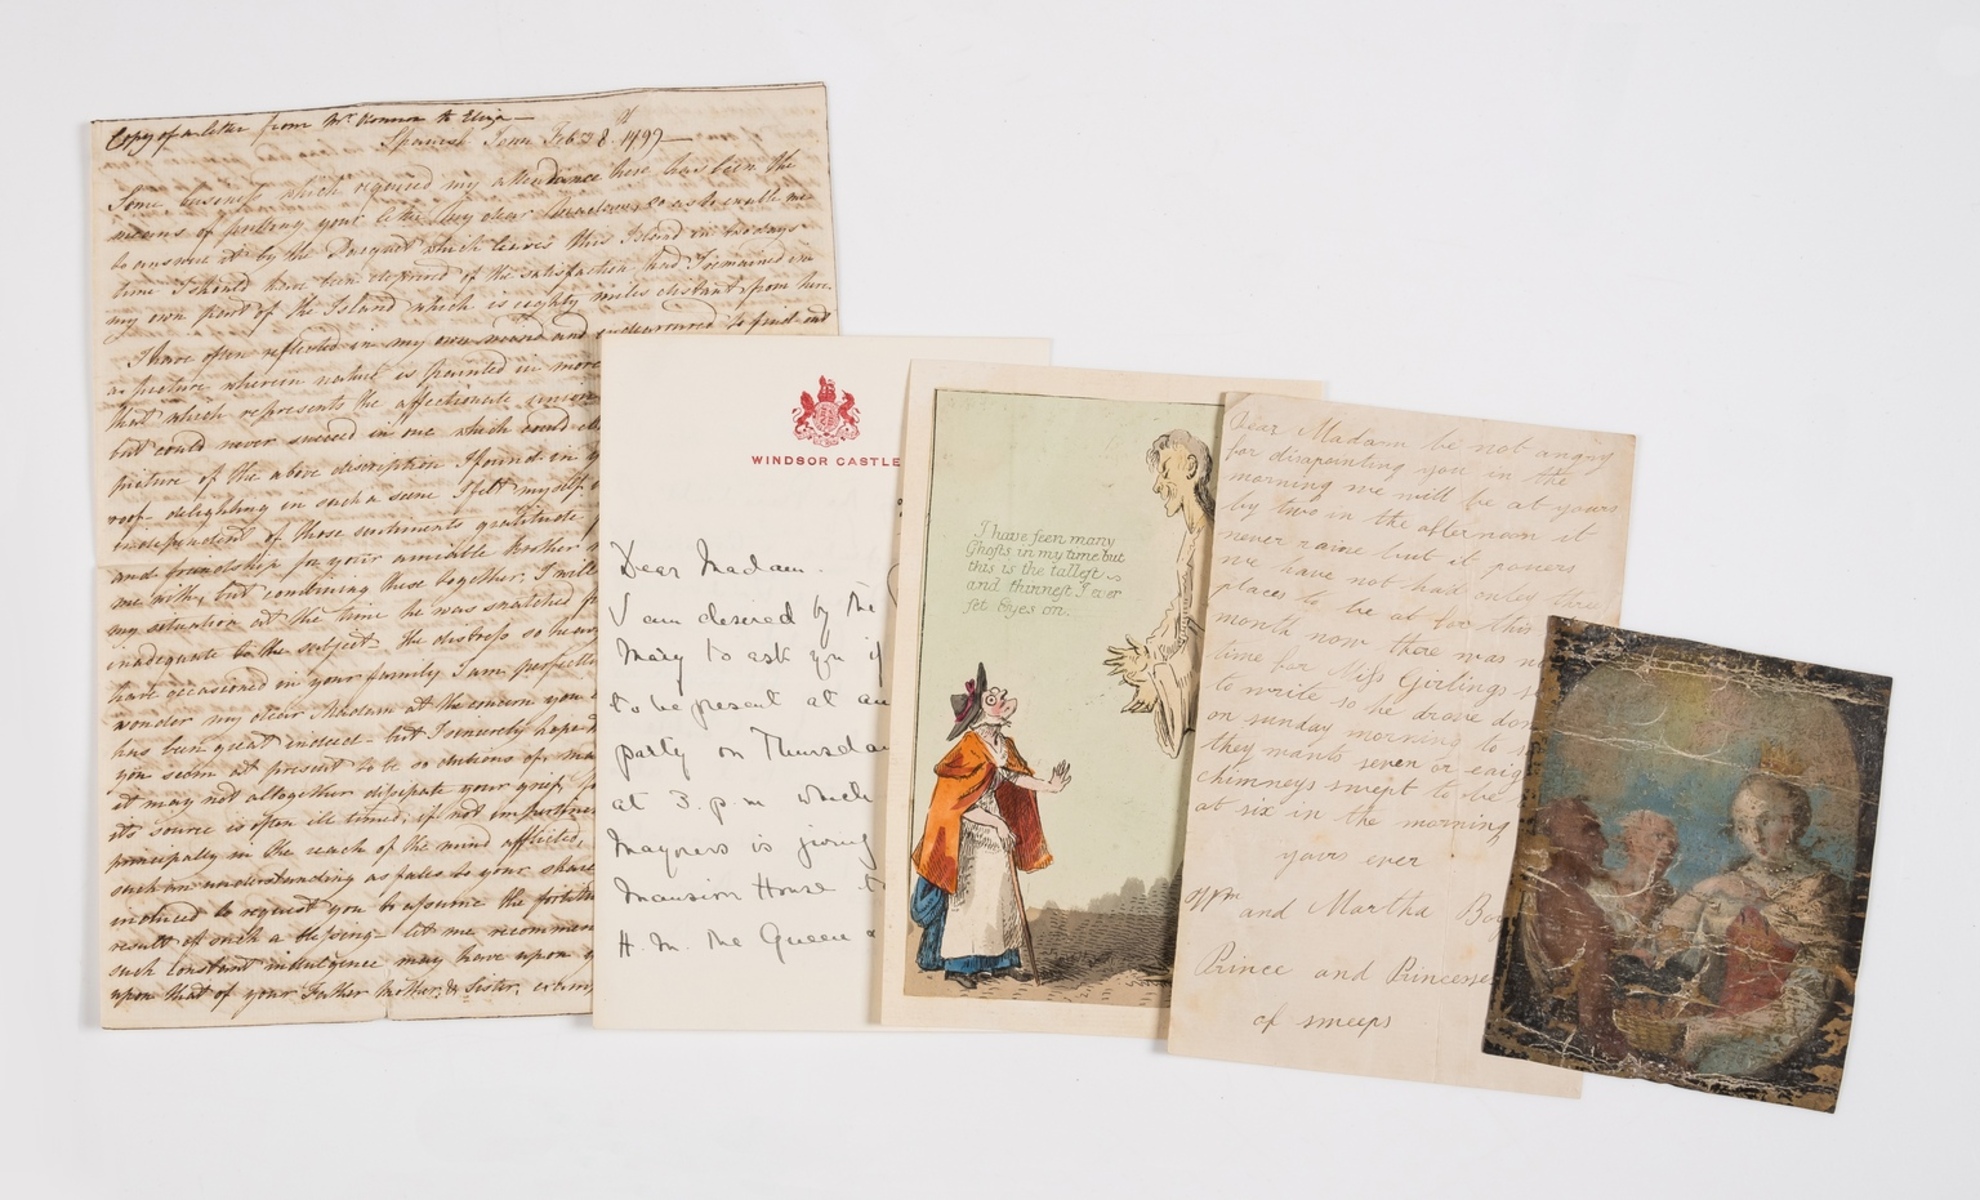 Copy of a letter from Mr to Eliza
Spanish Town Feb 28 1797
Some business which required my attendance here has been the
means of putting your letter my dear so as to enable me
to answer it by the Pacquet which leaves this Island in two days
time I should have been deprived of the satisfaction had I remained in
my own part of the Island which is eighty miles distant from here.
I have often reflected in my own mind and endeavoured to find out
a picture wherein nature is painted in more
that which represents the affectionate union
but could never succeed in one which could
picture of the above discription I found in
roof - delighting in such a scene I felt myself
independent of those sentiments gratitude
and friendship for your amiable brother
me with, but combining these together, I will
my situation at the time he was snatched
inadequate to the subject - the distress so heavy
have occasioned in your family I am perfectly
wonder my dear Madam at the concern you
has been great indeed - but I sincerely hope
you seem at present to be so dubious of, ma
it may not altogether dissipate your grief,
its source is often ill timed, if not impertinent
principally in the reach of the mind afflicted,
such an understanding as fales to your share
induced to request you to assume the fortitu
result of such a blessing - let me recommen
such constant indulgence may have upon y
upon that of your Father Mother, & Sister,
WINDSOR CASTLE
Dear Madam.
I am desired by the
Mary to ask you if
to be present at an
party on Thursda
at 3. p.m which
Mayoress is giving
Mansion House t
H. M. The Queen a
I have seen many
Ghosts in my time but
this is the tallest
and thinnest I ever
set Eyes on.
Dear Madam be not angry
for disapointing you in the
morning we will be at yours
by two in the afternoon it
never raine but it powers
we have not had onley three
places to be at for this
month now there was no
time for Miss Girlings s
to write so he drove don
on sunday morning to s
they wants seven or eaig
chimneys swept to be
at six in the morning
yours ever
Wm and Martha Boy
Prince and Princesse
of sweeps